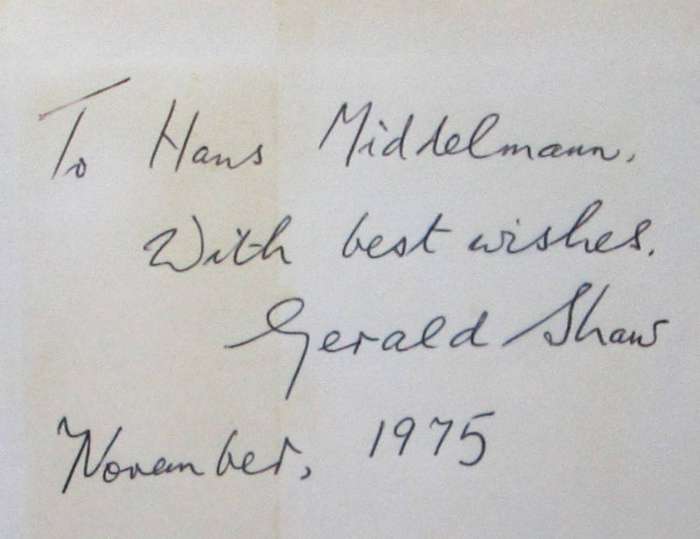 To Hans Middelmann.
With best wishes.
Gerald Shaw
November, 1975